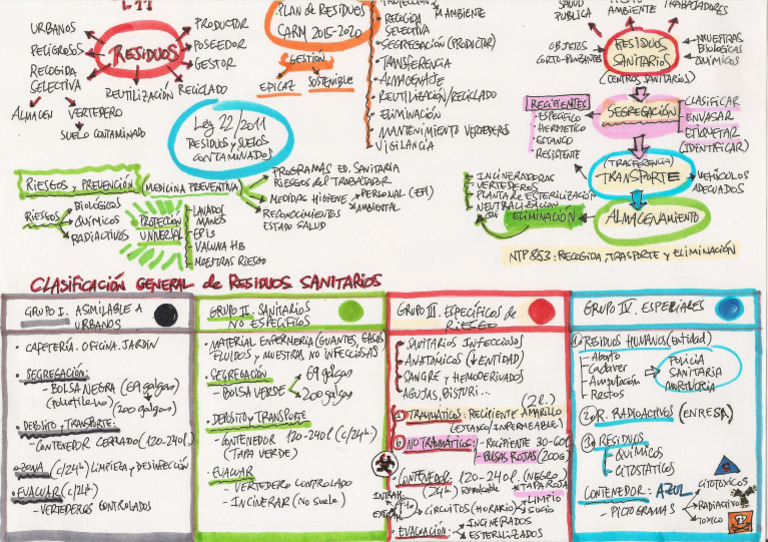 URBANOS
PELIGROSOS
RECOGIDA
SELECTIVA
ALMACEN
VERTEDERO
SUELO CONTAMINADO
RESIDUOS
REUTILIZACIÓN
RECICLADO
PRODUCTOR
POSEEDOR
GESTOR
PLAN de RESIDUOS
CARM 2015-2020
GESTIÓN
EFICAZ
SOSTENIBLE
M AMBIENTE
RECOGIDA
SELECTIVA
SEGREGACIÓN (PRODUCTOR)
TRANSFERENCIA
ALMACENAJE
REUTILIZACIÓN/RECICLADO
ELIMINACIÓN
MANTENIMIENTO VERTEDEROS
VIGILANCIA
Ley 22/2011
RESIDUOS y SUELOS
CONTAMINADOS
SALUD
PUBLICA
AMBIENTE
TRABAJADORES
OBJETOS
CORTO-PUNZANTES
RESIDUOS
SANITARIOS
(CENTROS SANITARIOS)
MUESTRAS
BIOLÓGICAS
QUÍMICOS
RECIPIENTES
ESPECÍFICO
HERMETICO
ESTANCO
RESISTENTE
SEGREGACIÓN
CLASIFICAR
ENVASAR
ETIQUETAR
(IDENTIFICAR)
(TRASFERENCIA)
TRANSPORTE
VEHÍCULOS
ADECUADOS
INCINERADORAS
VERTEDEROS
PLANTA de ESTERILIZACIÓN
NEUTRALIZACIÓN
ELIMINACIÓN
ALMACENAMIENTO
NTP 853: RECOGIDA, TRASPORTE y ELIMINACIÓN
RIESGOS y PREVENCIÓN
(MEDICINA PREVENTIVA)
PROGRAMAS ED. SANITARIA
RIESGOS del TRABAJADOR
MEDIDAS HIGIENE
PERSONAL (EPI)
AMBIENTAL
RECONOCIMIENTOS
ESTADO SALUD
RIESGOS
BIOLÓGICOS
QUÍMICOS
RADIACTIVOS
PROTECCIÓN
UNIVERSAL
LAVADO
MANOS
EPIS
VACUNA HB
MUESTRAS RIESGO
CLASIFICACIÓN GENERAL de RESIDUOS SANITARIOS
GRUPO I. ASIMILABLE A
URBANOS
• CAFETERÍA. OFICINA. JARDÍN
• SEGREGACIÓN:
- BOLSA NEGRA (69 galgas)
(polietileno) (200 galgas)
• DEPOSITO y TRANSPORTE:
- CONTENEDOR CERRADO (120-240l)
• ZONA (c/24h) LIMPIEZA y DESINFECCIÓN
• EVACUAR (c/24h)
- VERTEDEROS CONTROLADOS
GRUPO II. SANITARIOS
NO ESPECÍFICOS
• MATERIAL ENFERMERIA (GUANTES, GASAS
FLUIDOS y MUESTRAS NO INFECCIOSAS
• SEGREGACIÓN
- BOLSA VERDE
69 galgas
200 galgas
• DEPOSITO y TRANSPORTE
- CONTENEDOR 120-240l (c/24h)
(TAPA VERDE)
• EVACUAR
- VERTEDERO CONTROLADO
- INCINERAR (No suelo)
GRUPO III. ESPECÍFICOS de
RIESGO
SANITARIOS INFECCIOSOS
ANATÓMICOS (≠ENTIDAD)
SANGRE y HEMODERIVADOS
AGUJAS, BISTURÍ...
(2l.)
TRAUMATICOS: RECIPIENTE AMARILLO
(ESTANCO/INPERMEABLE)
NO TRAUMATICOS:
- RECIPIENTE 30-60l
- BOLSAS ROJAS (200g)
CONTENEDOR: 120-240l. (NEGRO)
(24h)
TAPA ROJA
CIRCUITOS (HORARIO)
LIMPIO
SUCIO
EVACUACIÓN
INCINERADOS
ESTERILIZADOS
GRUPO IV. ESPECIALES
RESIDUOS HUMANOS (Entidad)
Aborto
Cadaver
Amputación
Restos
POLICIA
SANITARIA
MORTUORIA
R. RADIACTIVOS (ENRESA)
RESIDUOS
QUÍMICOS
CITOSTATICOS
CONTENEDOR: AZUL
- PICTOGRAMAS
CITOTOXICOS
RADIACTIVO
TOXICO